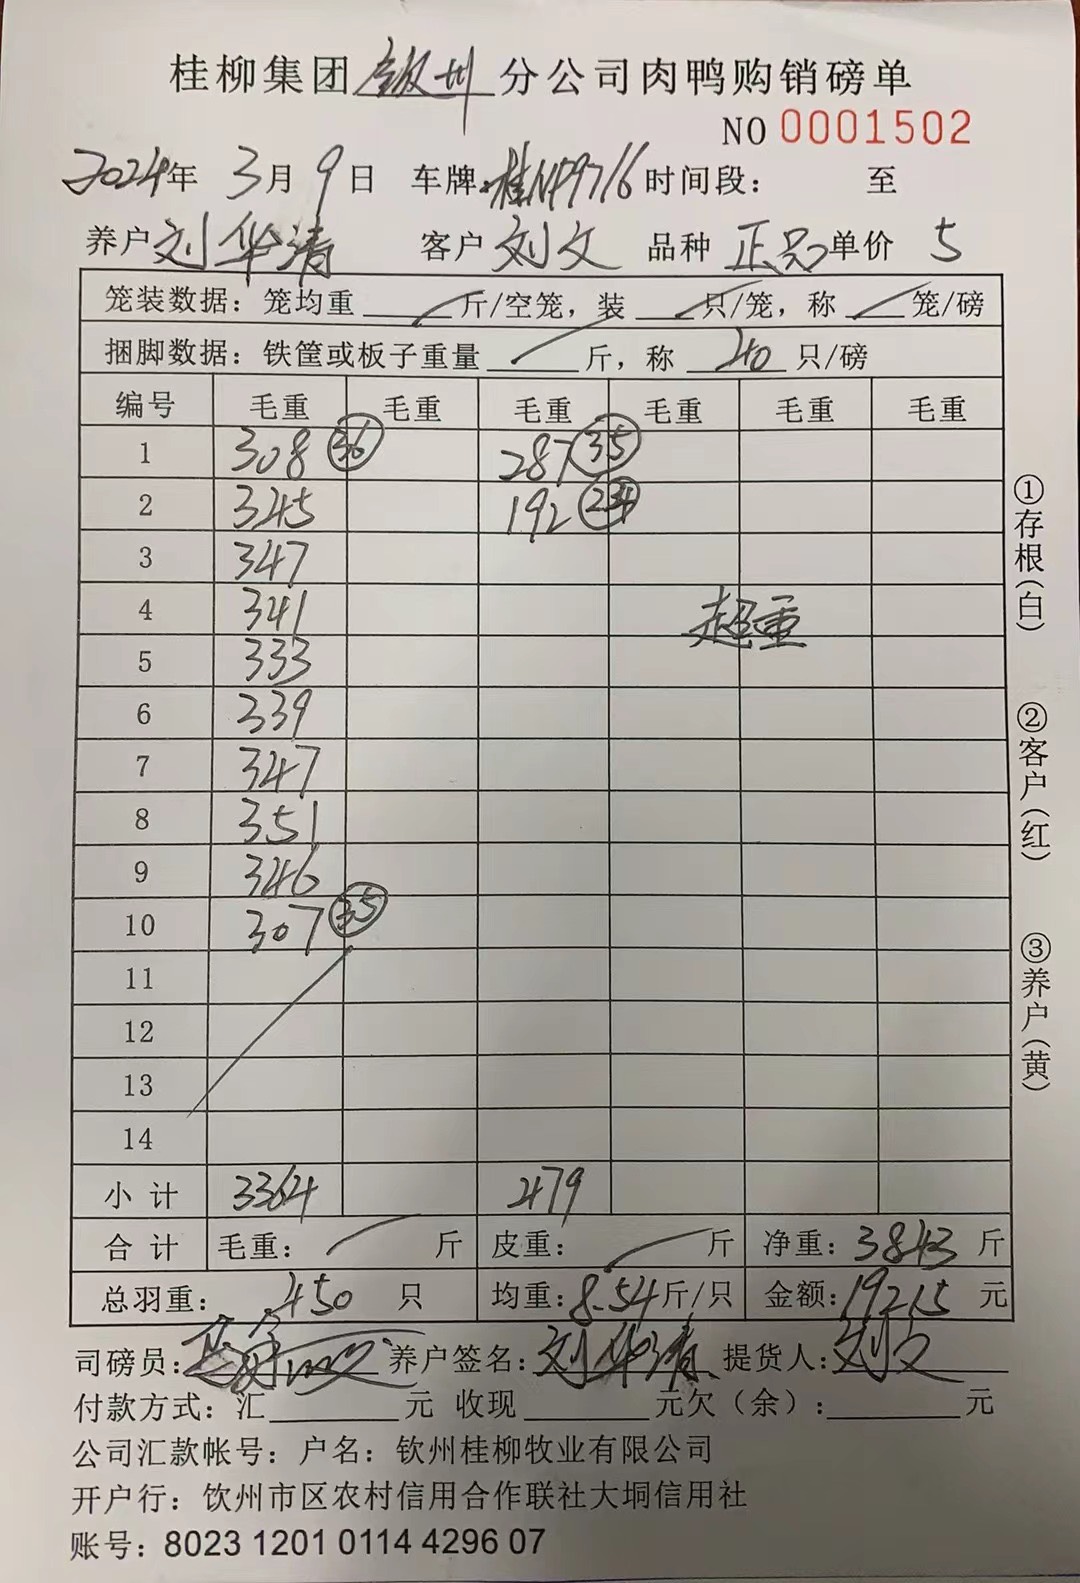 桂柳集团钦州分公司肉鸭购销磅单
NO 0001502
2024年 3月 9日 车牌:桂N49716 时间段: 至
养户 刘华清 客户 刘文 品种 正品 单价 5
笼装数据: 笼均重 斤/空笼, 装 只/笼, 称 笼/磅
捆脚数据: 铁筐或板子重量 斤, 称 40 只/磅
编号 毛重 毛重 毛重 毛重 毛重 毛重
1 308 36 287 35
2 345 192 24
3 347
4 341 超重
5 333
6 339
7 347
8 351
9 346
10 307 35
11
12
13
14
小计 3364 479
合计 毛重: 斤 皮重: 斤 净重: 3843 斤
总羽重: 450 只 均重: 8.54 斤/只 金额: 19215 元
司磅员: 养户签名: 刘华清 提货人: 刘文
付款方式: 汇 元 收现 元欠(余): 元
公司汇款帐号: 户名: 钦州桂柳牧业有限公司
开户行: 钦州市区农村信用合作联社大垌信用社
账号: 8023 1201 0114 4296 07
①存根(白)
②客户(红)
③养户(黄)